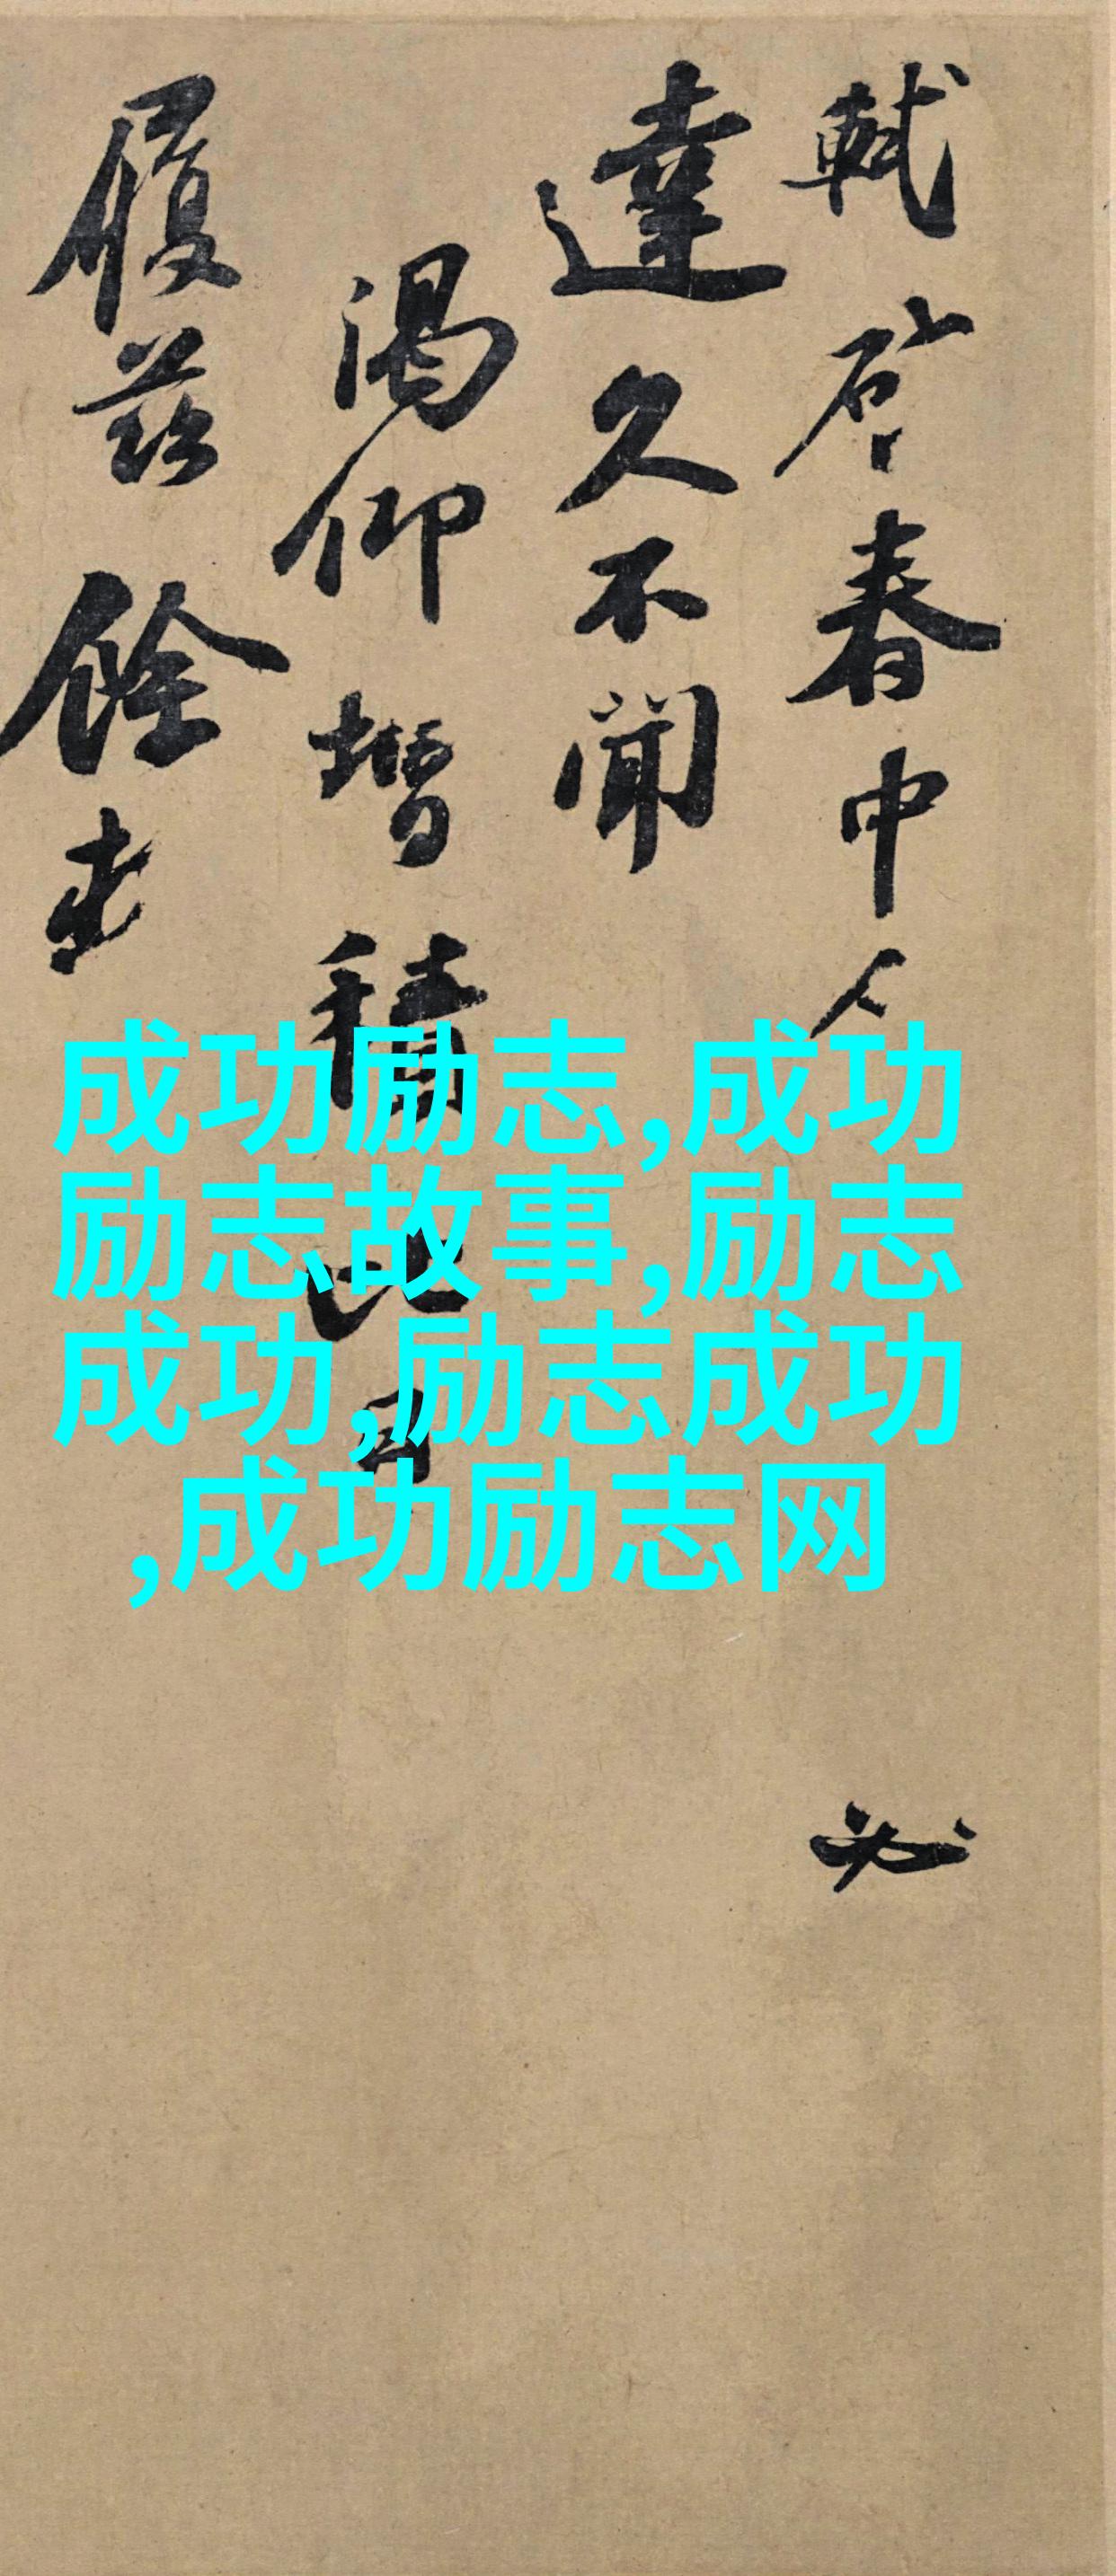 軾啓春中人必
達久不聞
渴仰增積比日
履茲餘
成功励志,成功
励志故事,励志
成功,励志成功
,成功励志网